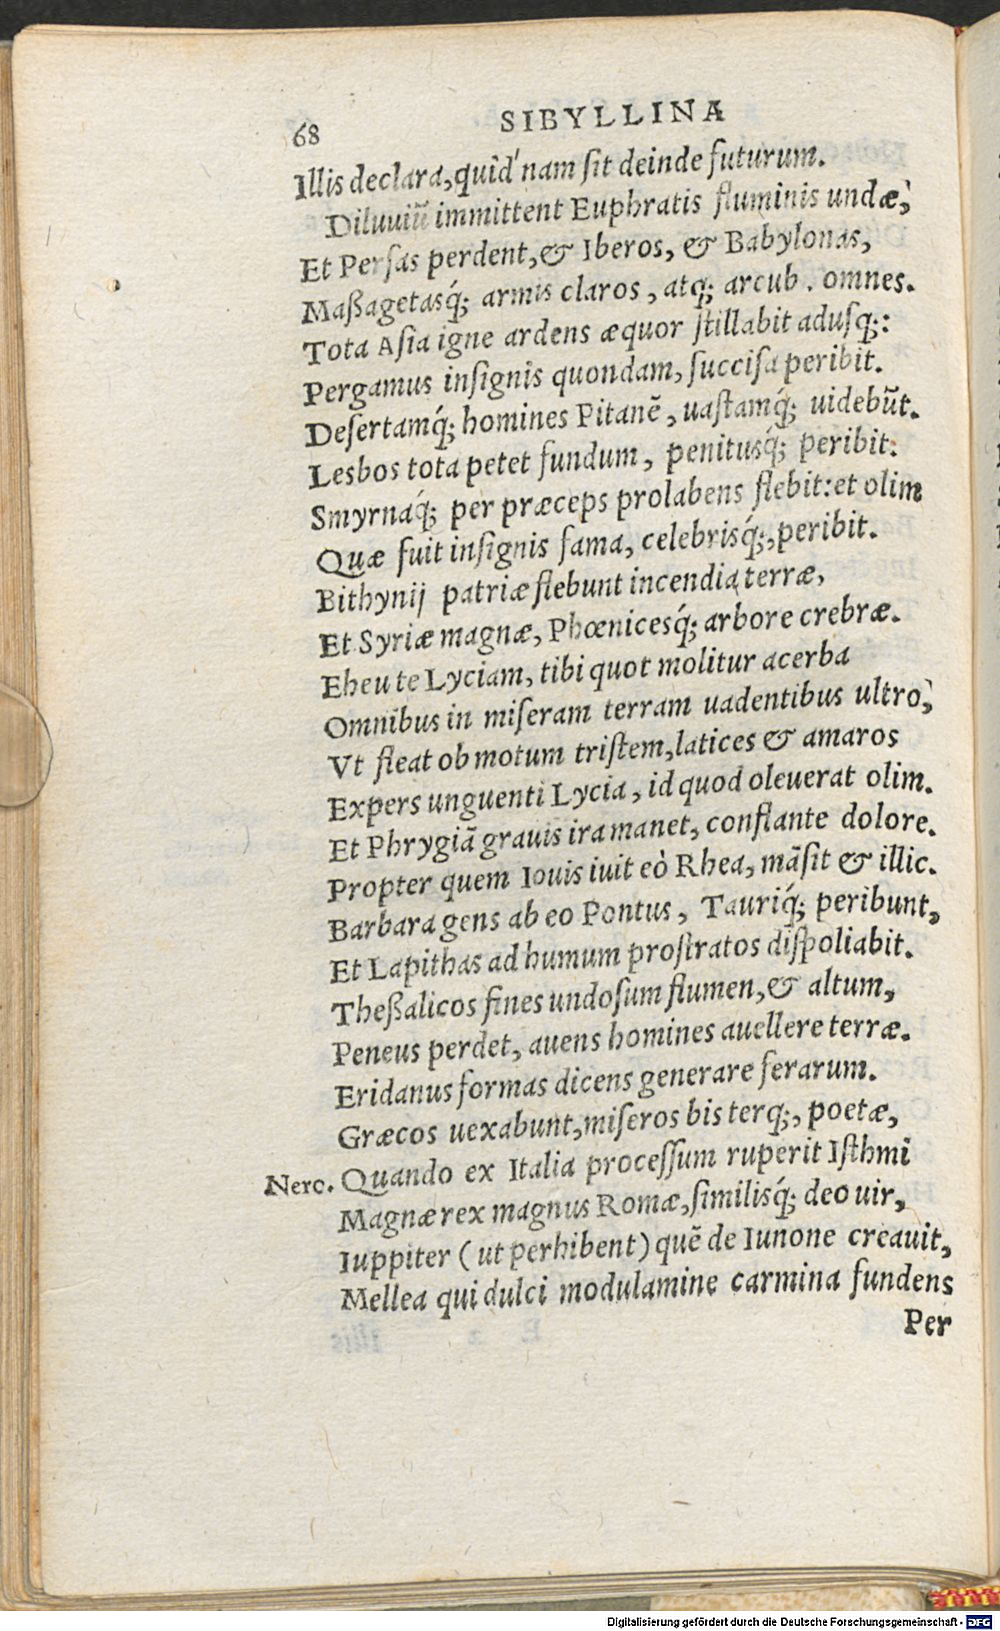 68 SIBYLLINA
Illis declara, quid'nam sit deinde futurum.
Diluuiū immittent Euphratis fluminis undæ,
Et Persas perdent, & Iberos, & Babylonas,
Maßagetasq́; armis claros, atq; arcub. omnes.
Tota Asia igne ardens æquor stillabit adusq;:
Pergamus insignis quondam, succisa peribit.
Desertamq́; homines Pitanē, uastamq́; uidebūt.
Lesbos tota petet fundum, penitusq́; peribit:
Smyrnaq́; per præceps prolabens flebit: et olim
Quæ fuit insignis fama, celebrisq́;, peribit.
Bithynij patriæ flebunt incendia terræ,
Et Syriæ magnæ, Phœnicesq́; arbore crebræ.
Eheu te Lyciam, tibi quot molitur acerba
Omnibus in miseram terram uadentibus ultro,
Vt fleat ob motum tristem, latices & amaros
Expers unguenti Lycia, id quod oleuerat olim.
Et Phrygiā grauis ira manet, conflante dolore.
Propter quem Iouis iuit eò Rhea, māsit & illic.
Barbara gens ab eo Pontus, Tauriq́; peribunt,
Et Lapithas ad humum prostratos dispoliabit.
Theßalicos fines undosum flumen, & altum,
Peneus perdet, auens homines auellere terræ.
Eridanus formas dicens generare ferarum.
Græcos uexabunt, miseros bis terq;, poetæ,
Nero. Quando ex Italia processum ruperit Isthmi
Magnæ rex magnus Romæ, similisq́; deo uir,
Iuppiter (ut perhibent) quē de Iunone creauit,
Mellea qui dulci modulamine carmina fundens
Per
Digitalisierung gefördert durch die Deutsche Forschungsgemeinschaft - DFG